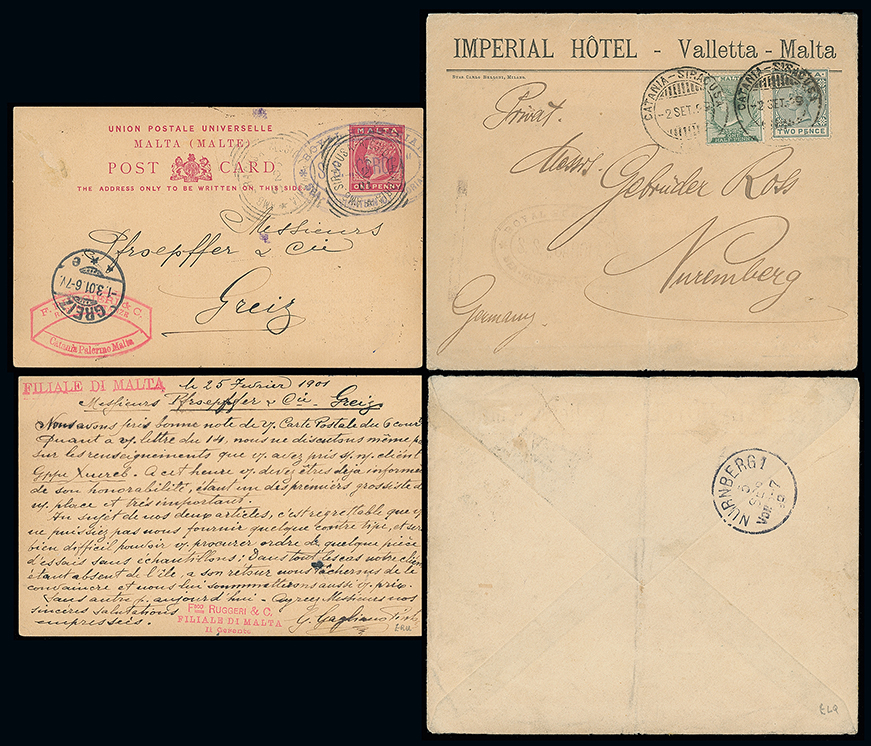 UNION POSTALE UNIVERSELLE
MALTA (MALTE)
POST CARD
THE ADDRESS ONLY TO BE WRITTEN ON THIS SIDE
MALTA
ONE PENNY
Messieurs
Pfroepffer & Cie
Greiz
GREIZ
-1.3.01.6-7N.
e
& C.
Catania Palermo Malta
IMPERIAL HÔTEL - Valletta - Malta
CATANIA-SIRACUSA
-2 SET.
CATANIA-SIRACUSA
-2 SET.
TWO PENCE
Privat.
Messrs.
Gebrüder Ross
Nuremberg
Germany.
ROYAL
FILIALE DI MALTA
le 25 Fevrier 1901
Messieurs Pfroepffer & Cie Greiz
Nous avons pris bonne note de v/ Carte Postale du 6 cour
Quant à v/ lettre du 14, nous ne discutons même p
sur les renseignements que v/ avez pris s/ n/ client
Gppe Xuereb. A cet heure v/ devez êtres deja informe
de son honorabilité, étant un des premiers grossiste d
v/ place et très important.
Au sujet de nos deux articles, c'est regrettable que v/
ne puissiez pas nous fournir quelque contre tipe, et ser
bien difficil pouvoir v/ procurer ordre de quelque pièce
d'essais sans échantillons: Dans tout les cas notre clien
étant absent de l'île, a son retour nous tâcherons de le
convaincre et nous lui sommettrons aussi v/ prix.
Sans autre p. aujourd'hui - Agréez Messieurs nos
sincères salutations
empressées.
RUGGERI & C.
FILIALE DI MALTA
Il Gerente
G. Gagliano
NÜRNBERG 1